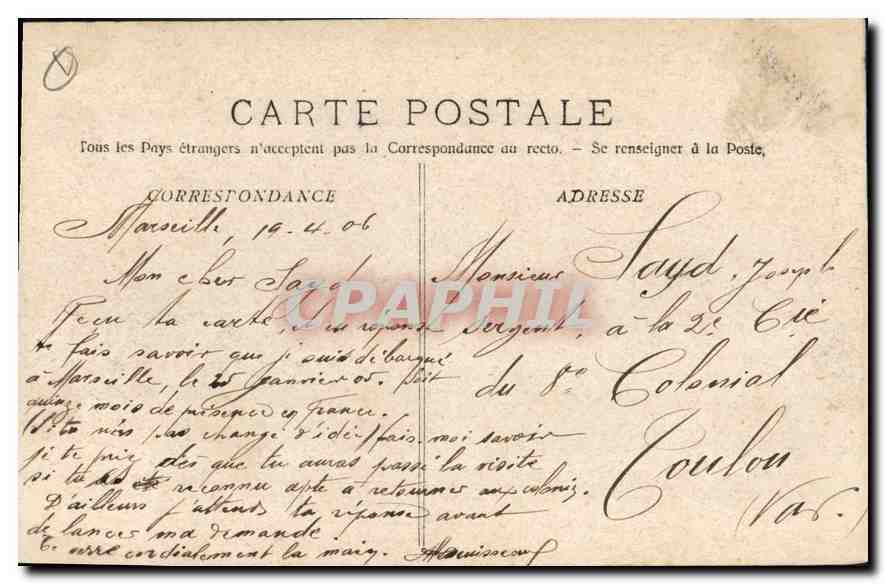 CARTE POSTALE
Tous les Pays étrangers n'acceptent pas la Correspondance au recto. – Se renseigner à la Poste,
CORRESPONDANCE
Marseille, 19-4-06
Mon cher Sayd
Reçu ta carte, et en réponse
te fais savoir que je suis débarqué
à Marseille, le 25 janvier 05. Soit
quinze mois de présence en France.
(Si tu n'as pas changé d'idée) fais-moi savoir
je te prie dès que tu auras passé la visite
si tu as été reconnu apte à retourner aux colonies.
D'ailleurs j'attends ta réponse avant
de lancer ma demande.
Te serre cordialement la main.
ADRESSE
Monsieur Sayd, Joseph
Sergent, à la 2e Cie
du 8e Colonial
Toulon
(Var).
CPAPHIL